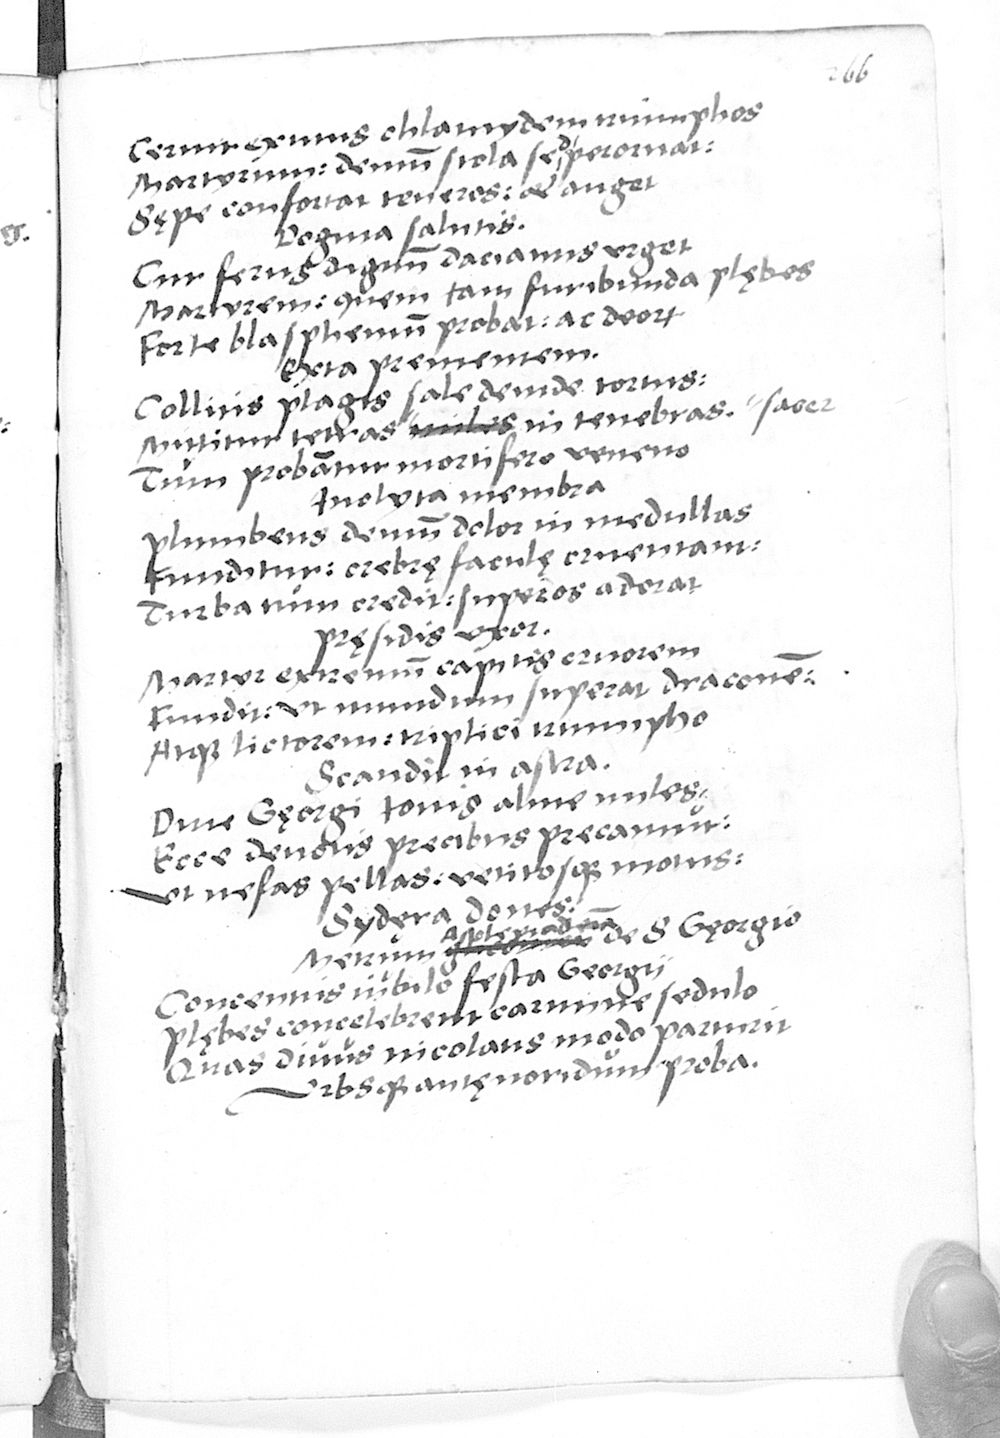 266
Cernit exutus chlamydem triumphos
Martyrum: demū stola sed perornat:
Sępe confortat teneros: & auget
Dogma salutis.
Cur ferus dignū dacianus vrget
Martyrem: quem tam furibunda plębes
Forte blasphemū probat: ac deort
Exta prementem.
Collitis plagis sale deinde tortus:
Mittitur tetras miles in tenebras. sacer
Tum probātur mortifero veneno
Inclyta membra
Plumbeus demū dolor in medullas
Funditur: crebrę faculę cruentant:
Turba tum credit: superos adorat
Pręsidis vxor.
Martyr extremū capitis cruorem
Fundit: vt mundum superat draconē:
Atq lictorem: triplici triumpho
Scandit in astra.
Diue Gęorgi Iouis alme miles:
Ecce deuotis precibus precamur:
Vt nefas pellas: vetitosq motus:
Sydera dones:
Metrum Asclepiadeū de S Gęorgio
Concentus iubilo festa Georgij
Plębes concelebrent carmine sedulo
Quas diuus nicolaus modo parturit
Vrbsq antęnoridum proba.
er.
: